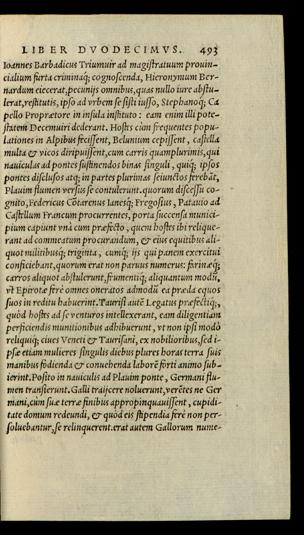 LIBER DVODECIMVS. 493
Ioannes Barbadicus Triumuir ad magistratuum prouin-
cialium furta criminaq́; cognoscenda, Hieronymum Ber-
nardum eiecerat, pecunijs omnibus, quas nullo iure abstu-
lerat, restitutis, ipso ad vrbem se sisti iusso, Stephanoq́; Ca
pello Propraetore in insula instituto: eam enim illi pote-
statem Decemuiri dederant. Hostes cùm frequentes popu-
lationes in Alpibus fecissent, Belunium cepissent, castella
multa & vicos diripuissent, cum carris quamplurimis, qui
nauiculas ad pontes sustinendos binas singuli, quiq́; ipsos
pontes disclusos atq; in partes plurimas seiunctos ferebāt,
Plauim flumen versus se contulerunt. quorum discessu co-
gnito, Federicus Cōtarenus Ianesq́; Fregosius, Patauio ad
Castellum Francum procurrentes, porta succensa munici-
pium capiunt vnà cum praefecto, quem hostes ibi relique-
rant ad commeatum procurandum, & eius equitibus ali-
quot militibusq́; triginta, cumq́; ijs qui panem exercitui
conficiebant, quorum erat non paruus numerus: farinaeq́;
carros aliquot abstulerunt, frumentiq́; aliquantum modū,
vt Epirotae ferè omnes oneratos admodū ea praeda equos
suos in reditu habuerint. Taurisij autē Legatus praefectiq́;,
quòd hostes ad se venturos intellexerant, eam diligentiam
perficiendis munitionibus adhibuerunt, vt non ipsi modò
reliquiq́; ciues Veneti & Taurisani, ex nobilioribus, sed i-
psae etiam mulieres singulis diebus plures horas terra suis
manibus fodienda & conuehenda laborē forti animo sub-
ierint. Posito in nauiculis ad Plauim ponte, Germani flu-
men transierunt. Galli traijcere noluerunt, verētes ne Ger
mani, cùm suae terrae finibus appropinquauissent, cupidi-
tate domum redeundi, & quòd eis stipendia ferè non per-
soluebantur, se relinquerent. erat autem Gallorum nume-